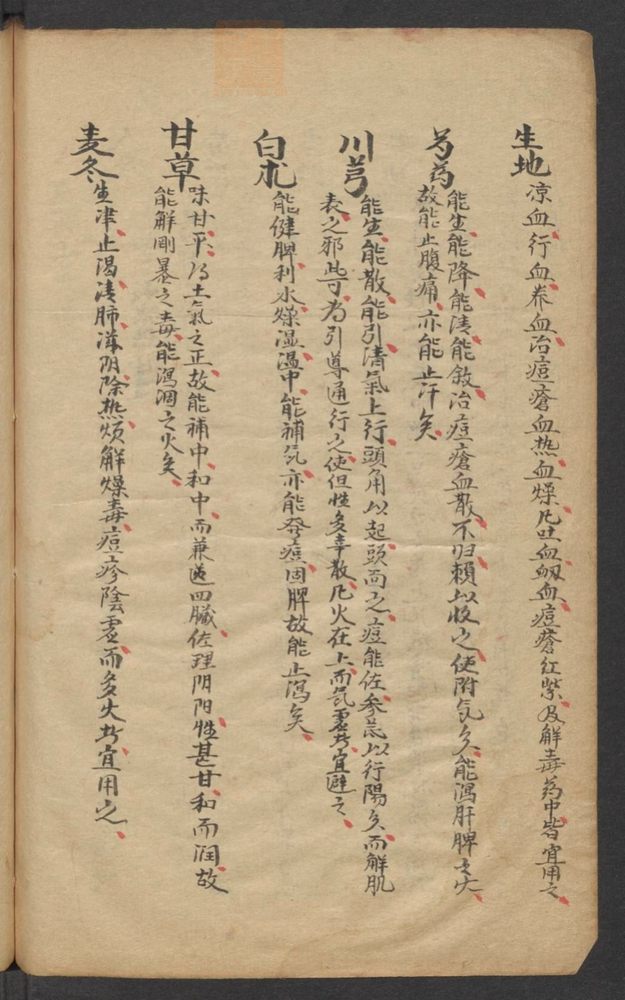 生地 凉血、行血、养血、治痘瘡血热血燥、凡吐血衂血、痘瘡紅紫、及解毒药中、皆宜用之、
芍药 能生、能降、能清、能敛、治痘瘡血散不归、頼以收之、使附气矣、能瀉肝脾之火、
故能止腹痛、亦能止汗矣、
川芎 能生、能散、能引清氣上行頭角、以起頭面之痘、能佐参芪、以行陽矣、而解肌
表之邪、此可为引導通行之使、但性多辛散、凡火在上而気虚者、宜避之、
白朮 能健脾、利水、燥湿、温中、能補気、亦能發痘、固脾、故能止瀉矣、
甘草 味甘平、乃土氣之正、故能補中、和中、而兼通四臟、佐理阴阳、性甚甘、和而润、故
能解剛暴之毒、能瀉涸之火矣、
麦冬 生津、止渴、清肺、滋阴、除热烦、解燥毒、痘疹陰虚而多火者、宜用之、